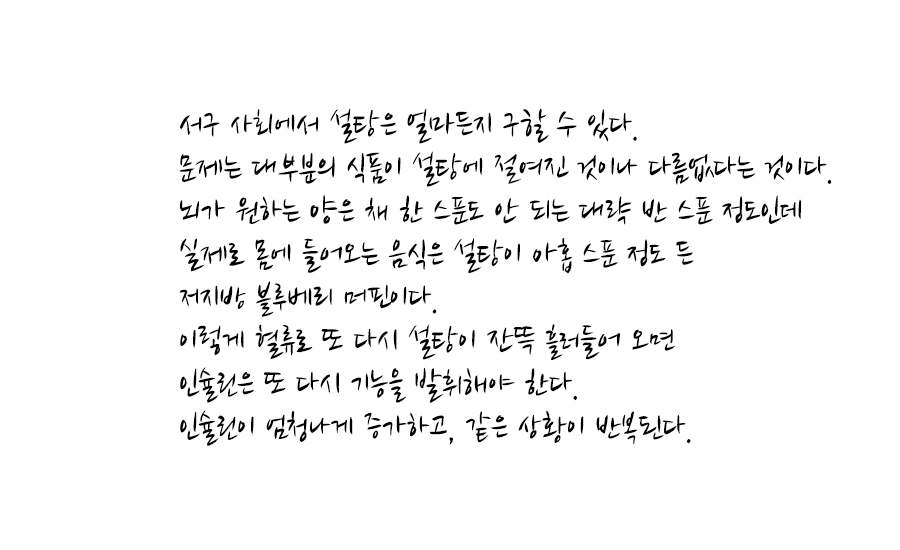 서구 사회에서 설탕은 얼마든지 구할 수 있다.
문제는 대부분의 식품이 설탕에 절여진 것이나 다름없다는 것이다.
뇌가 원하는 양은 채 한 스푼도 안 되는 대략 반 스푼 정도인데
실제로 몸에 들어오는 음식은 설탕이 아홉 스푼 정도 든
저지방 블루베리 머핀이다.
이렇게 혈류로 또 다시 설탕이 잔뜩 흘러들어 오면
인슐린은 또 다시 기능을 발휘해야 한다.
인슐린이 엄청나게 증가하고, 같은 상황이 반복된다.